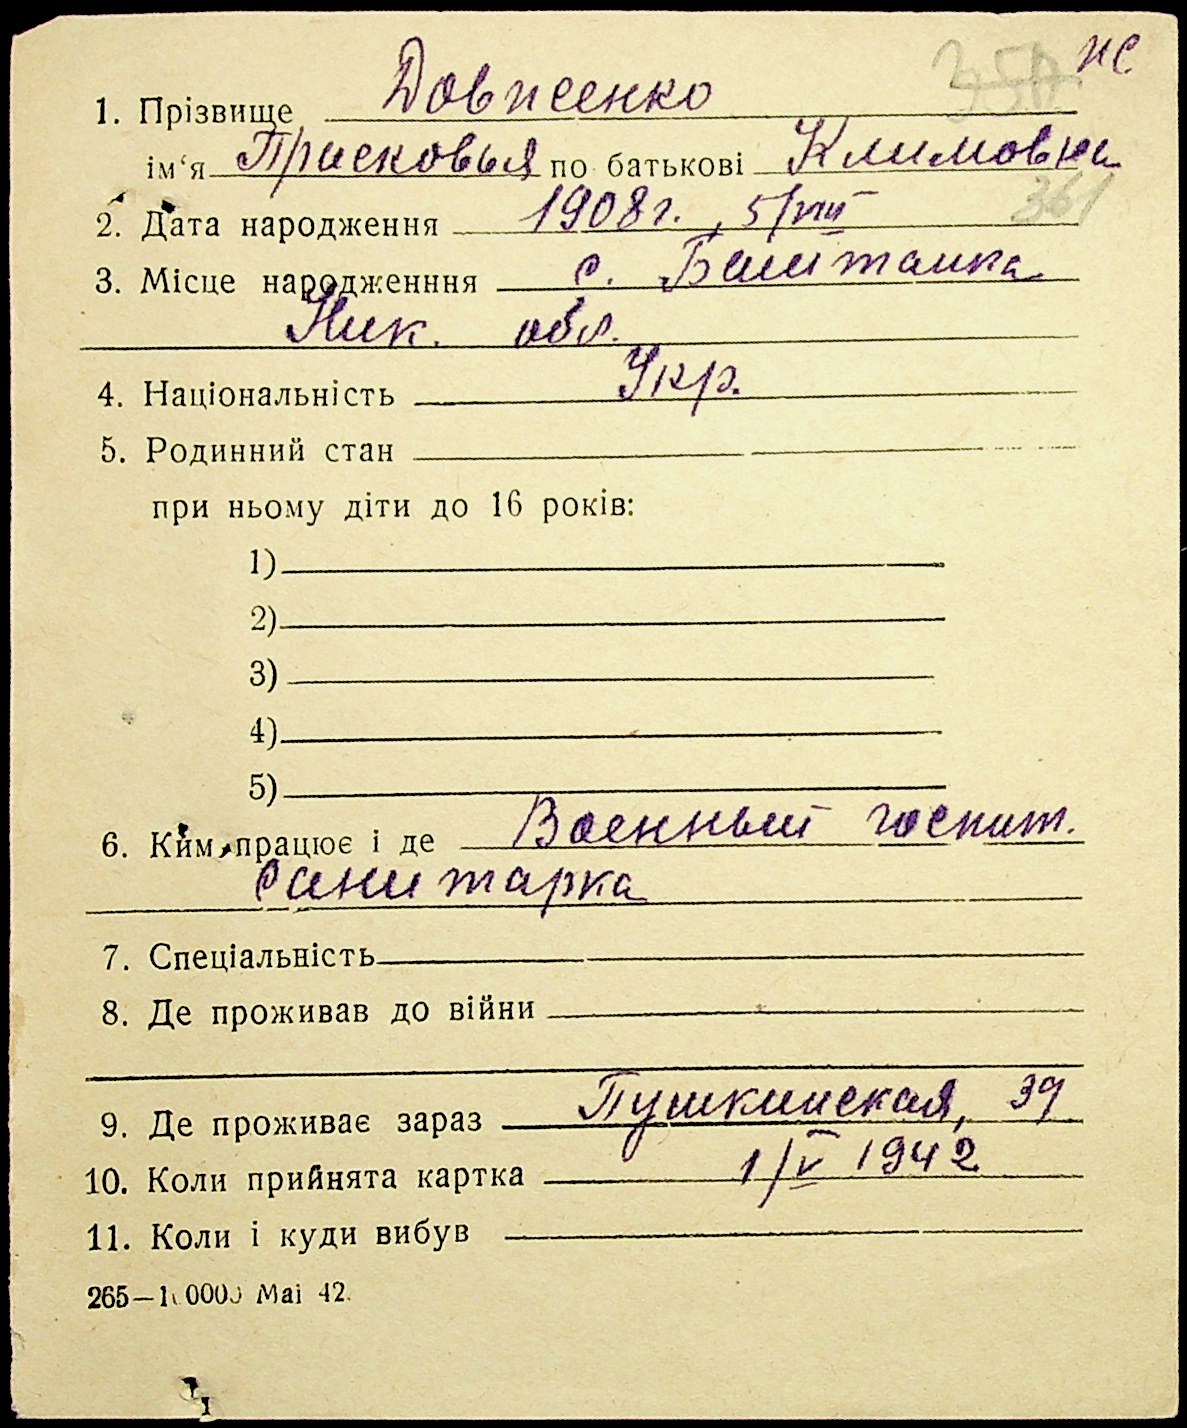 нс
1. Прізвище Довженко
ім‘я Присковья по батькові Климовна
361
2. Дата народження 1908г., 5/VIII
3. Місце народженння с. Баштанка
Ник. обл.
4. Національність Укр.
5. Родинний стан
при ньому діти до 16 років:
1)
2)
3)
4)
5)
6. Ким працює і де Военный госпит.
Санитарка
7. Спеціальність
8. Де проживав до війни
9. Де проживає зараз Пушкинская, 39
10. Коли прийнята картка 1/V 1942
11. Коли і куди вибув
265—10000 Mai 42.